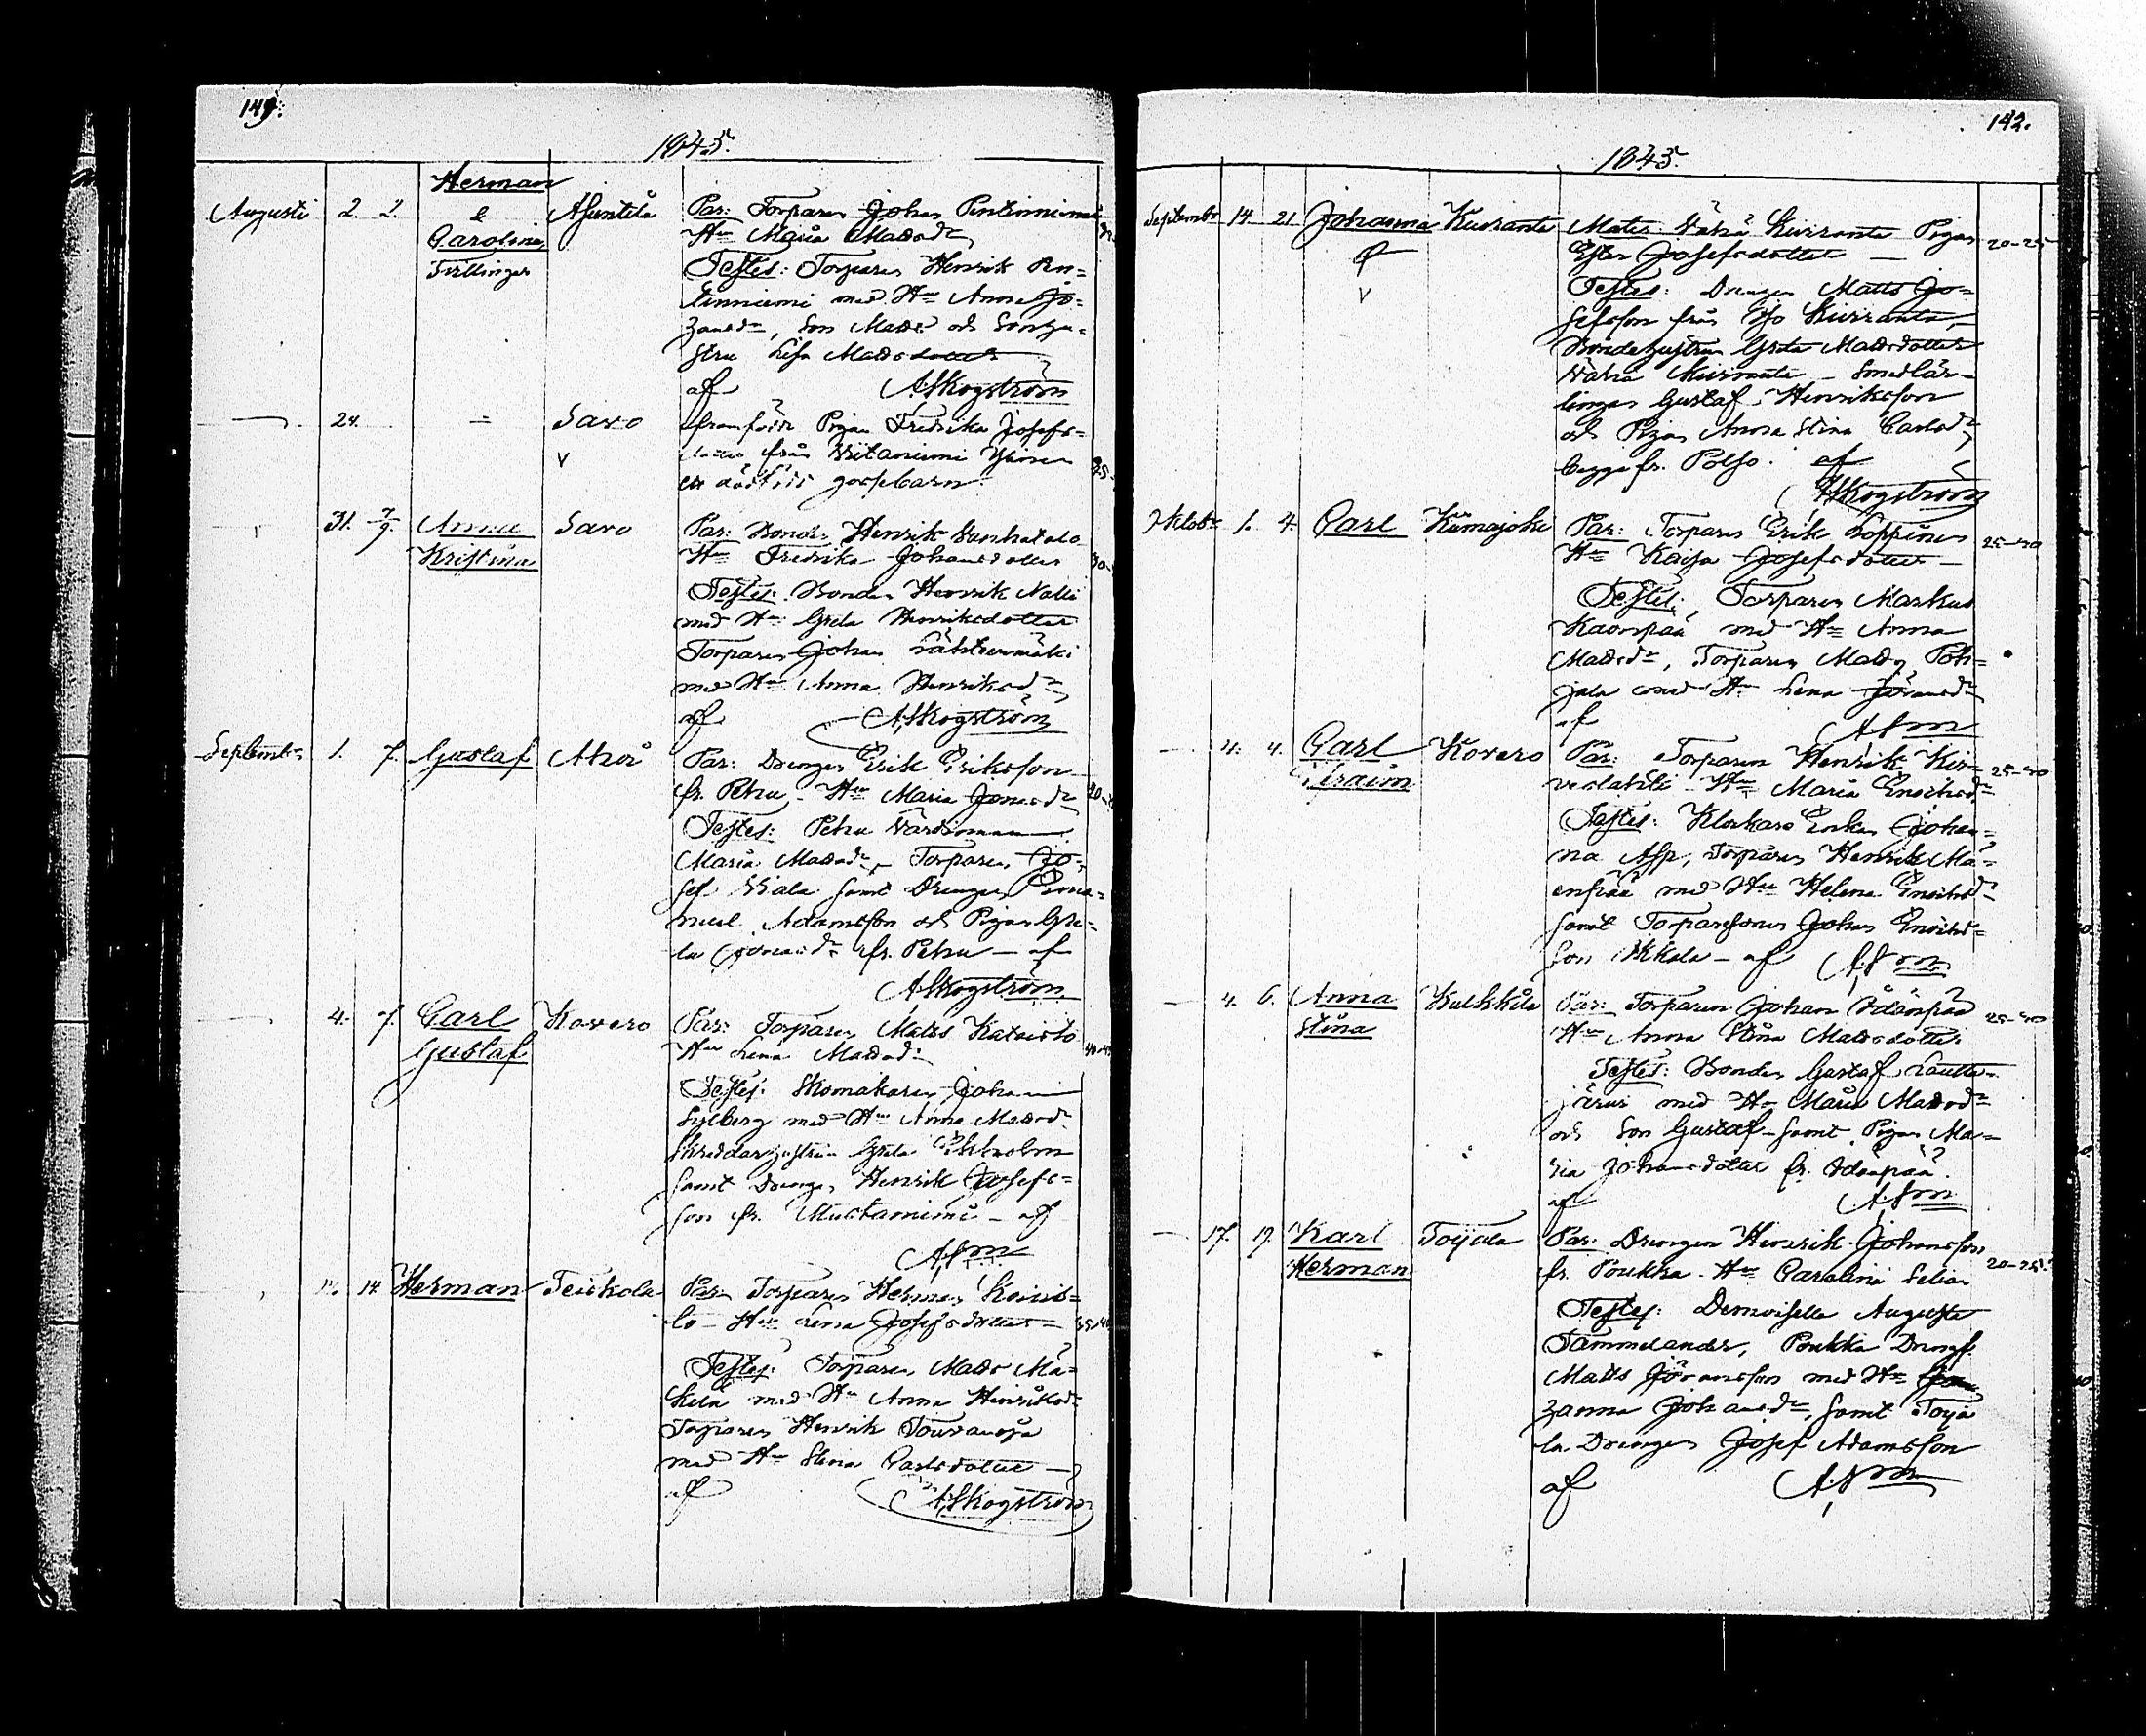 149.
1845.
Augusti 2. 2. Herman & Carolina Tvillingar Asuntila Par: Torparen Johan Pentinniemi
Hu Maria Matsdr
Testes: Torparen Henrik Pen=
tinniemi med Hu Anna Jo=
hansdr, Son Matts och Sonhu=
stru Lisa Mattsdotter
af ASkogström
24. = Savo framföde Pigan Fredrika Josefs=
dotter från Viitaniemi
ett dödfödt gossebarn
31. 7/9. Anna Kristina Savo Par: Bonden Henrik Vanhatalo
Hu Fredrika Johansdotter
Testes: Bonden Henrik Nalli
med Hu Greta Henriksdotter
Torparen Johan Lähteenmäki
med Hu Anna Henriksdr
af ASkogström
Septembr 1. 7. Gustaf Par: Drengen Erik Eriksson
fr. Petru - Hu Maria
Testes: Petru Värdinnan
Maria Mattsdr, Torparen Jo=
sef Viala samt Drengen Ema=
nuel Adamsson och Pigan Gre=
ta fr. Petru - af
ASkogström
4. 7. Carl Gustaf Kovero Par: Torparen Matts Kataisto
Hu Lena Mattsdr
Testes: Skomakaren Johan
med Hu Anna Mattsdr
Skreddarhustrun Greta Ekholm
samt Drengen Henrik Josefs=
son fr. Mustaniemi - af
ASm
14. Herman Teiskola Par: Torparen Herman Koivis=
to - Hu Lena Josefsdotter
Testes: Torparen Matts Mä=
kelä med Hu Anna Henriksdr
Torparen Henrik Touranoja
med Hu Stina Carlsdotter
af ASkogström
142.
1845.
Septembr 14 21. Johanna Kuiranta Mater Vähä Kuiranta Pigan 20-25
Ester Josefsdotter
Testes: Drengen Matts Jo=
sefsson från Iso Kuiranta,
Bondehustrun Greta Mattsdotter
Vähä Kuiranta - Smedlär=
lingen Gustaf Henriksson
och Pigan Anna Stina Carlsdr
begge fr. Polso. af
ASkogström
Oktobr 1. 4. Carl Kiimajoki Par: Torparen Erik Loppinen 25-30
Hu Kaisa Josefsdotter
Testes: Torparen Markus
Kaonpää med Hu Anna
Mattsdr, Torparen Matts Poh=
jala med Hu Lena Göransdr
af ASm
4. 4. Carl Efraim Kovero Par: Torparen Henrik Kir= 25-30
Hu Maria Enochsdr
Testes: Klockars Enkan Johan=
na Asp, Torparen Henrik Mä=
enpää med Hu Helena Enochsdr
samt Torparesonen Johan Enochs=
son - af ASm
4. 6. Anna Stina Kulkkila Par: Torparen Johan Ödänpää 25-30
Hu Anna Stina Mattsdotter
Testes: Bonden Gustaf Lautta=
järvi med Hu Maria Mattsdr
och Son Gustaf - samt Pigan Ma=
ria Johansdotter fr. Ödänpää.
af ASm
17. 19. Karl Herman Toijala Par: Drengen Henrik Johansson 20-25.
fr. Poukka - Hu Carolina
Testes: Demoiselle Augusta
Tammelander, Poukka Drengen
Matts Göransson med Hu
Johansdr, samt Toija
la Drengen Josef Adamsson
af ASm